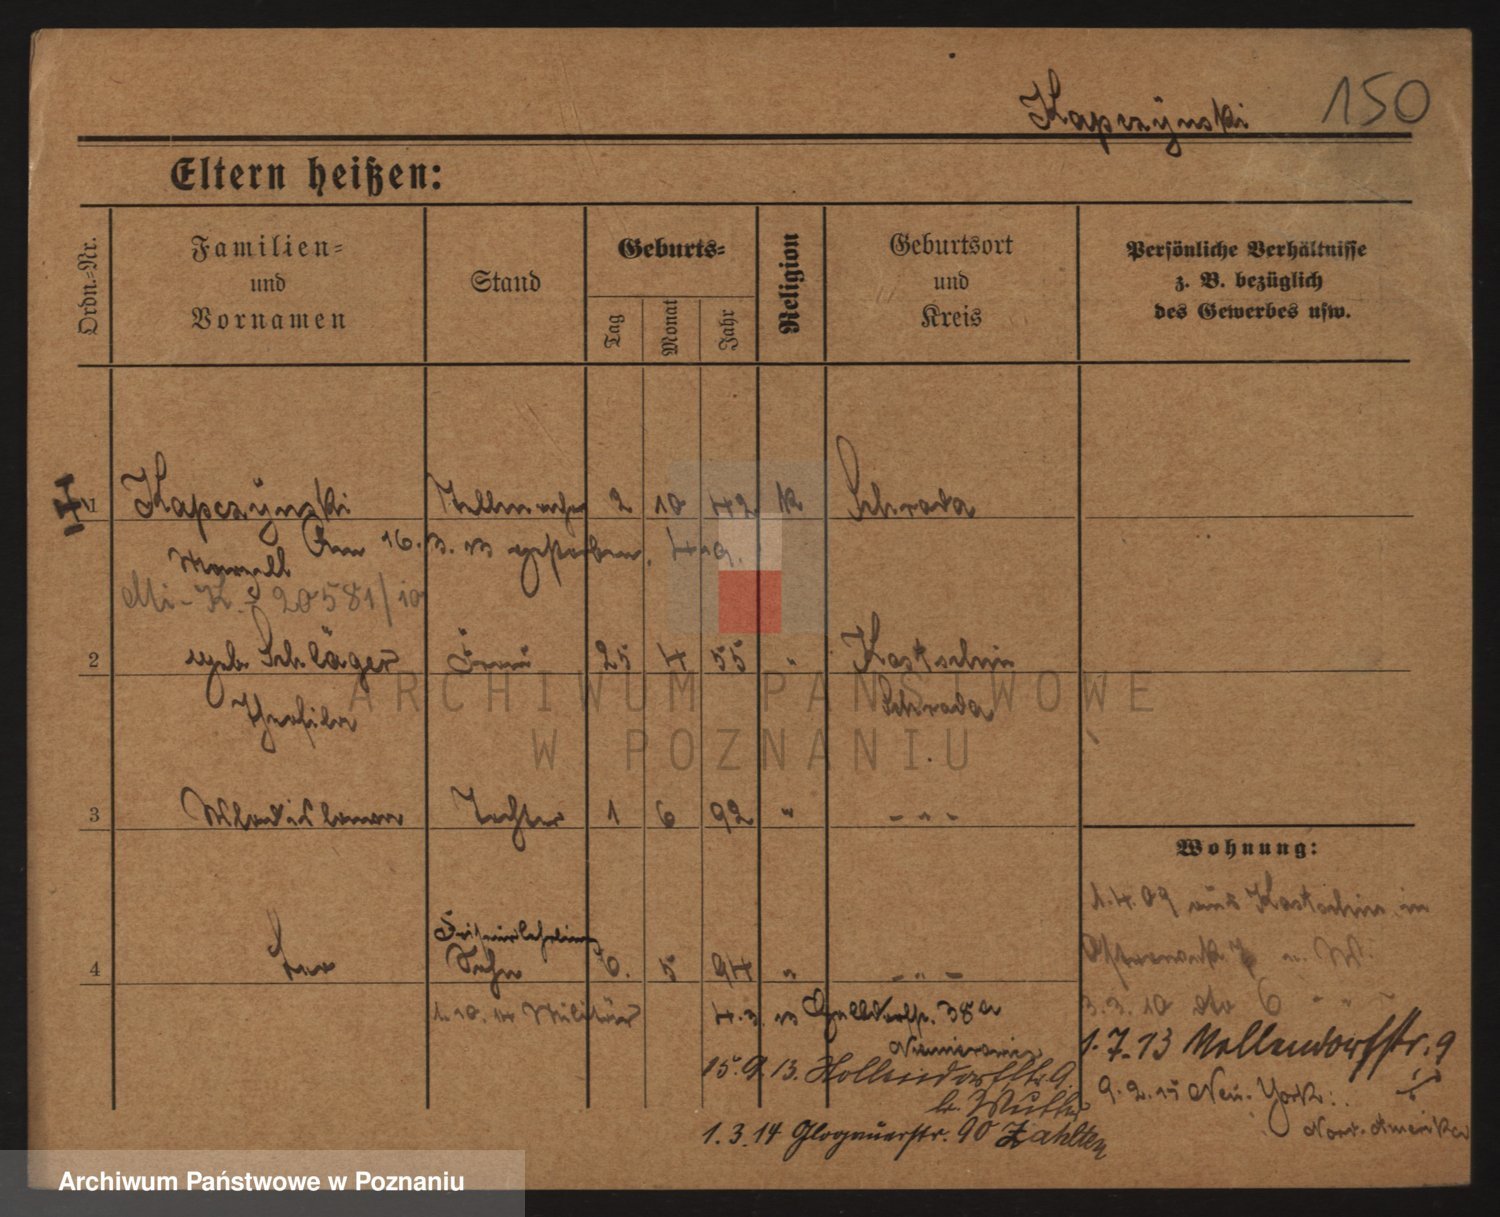 Kapczynski 150
Eltern heißen:
Ordn.-Nr.
Familien-
und
Vornamen
Stand
Geburts-
Tag
Monat
Jahr
Religion
Geburtsort
und
Kreis
Persönliche Verhältnisse
z. B. bezüglich
des Gewerbes usw.
1 Kapczynski 2 10 42 k Schroda
Am 16. 3. 13 gestorben.
Marzell
20581/10
2 geb. Schläger Frau 25 4 55 " Kostschin
Theofila Schroda
3 Wladislawa Tochter 1 6 92 " - " -
Friseurlehrling
4 Sohn 6. 5 94 " - " -
1.10.14 Militär
4.3.13 38a
15.9.13. Hollendorfstr. 9.
1.3.14 Glogauerstr. 90
Wohnung:
1.4.09 aus Kostschin in
3.3.10 dto 6 " "
1.7.13 Nollendorfstr. 9
9.2.15 New-York.
Nord-Amerika
ARCHIWUM PAŃSTWOWE
W POZNANIU
Archiwum Państwowe w Poznaniu